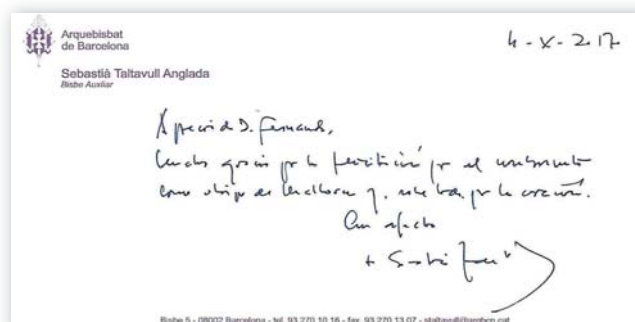 Arquebisbat
de Barcelona
4-X-2.17
Sebastià Taltavull Anglada
Bisbe Auxiliar
Apreciado D. Fernando,
Muchas gracias por la felicitación por el nombramiento
como obispo de Mallorca y, sobre todo, por la oración.
Con afecto
+ Sebastià
Bisbe 5 - 08002 Barcelona - tel. 93 270 10 16 - fax. 93 270 13 07 - staltavull@arqbcn.cat